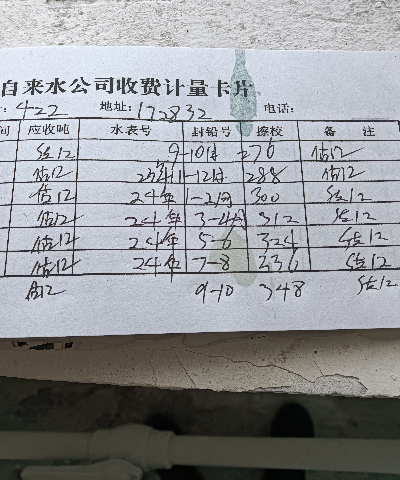 自来水公司收费计量卡片
: 422 地址: 172832 电话:
间 应收吨 水表号 封铅号 擦校 备 注
估12 9-10月 276 估12
估12 23年11-12月 288 估12
估12 24年 1-2月 300 估12
估12 24年 3-4月 312 估12
估12 24年 5-6 324 估12
估12 24年 7-8 336 估12
估12 9-10 348 估12